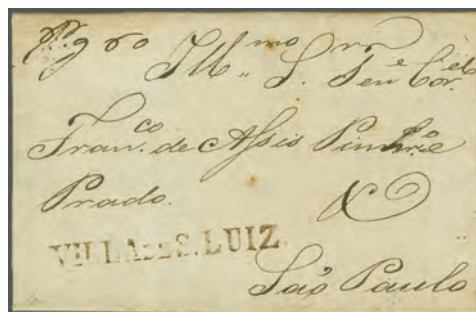 Pg 60
Illmo Snr Tene Corel
Franco de Assis Pinhro e
Prado.
VILLA DE S. LUIZ
São Paulo